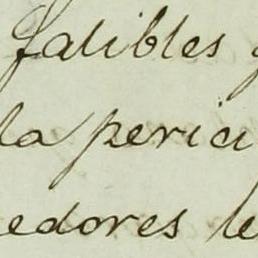 falibles
la perici
edores le